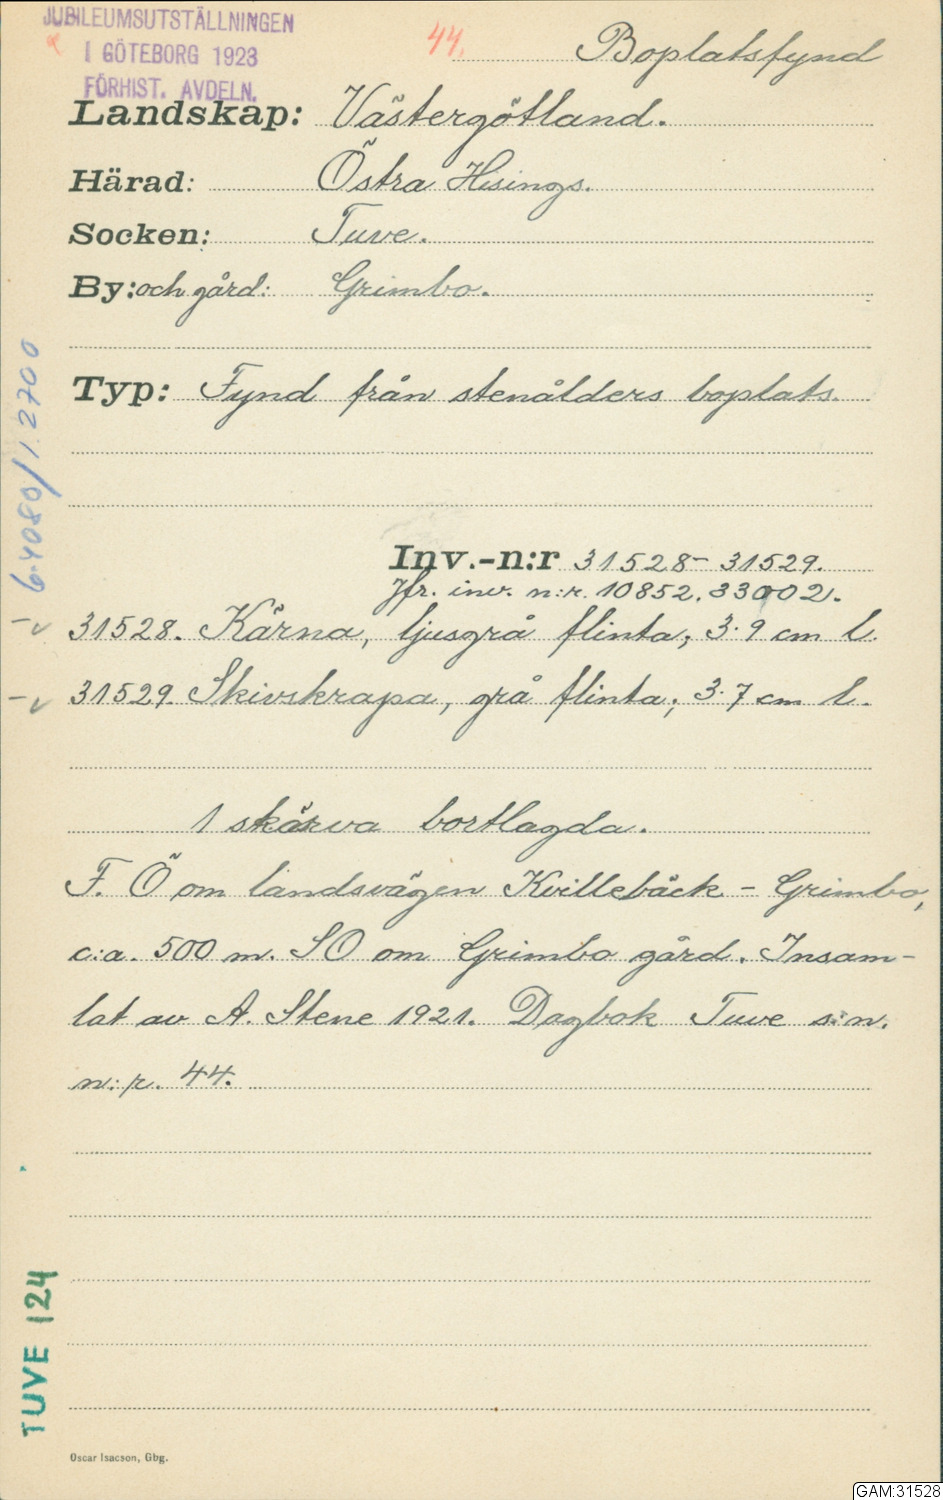 JUBILEUMSUTSTÄLLNINGEN
I GÖTEBORG 1923
FÖRHIST. AVDELN.
44.
Boplatsfynd
Landskap: Västergötland.
Härad: Östra Hisings.
Socken: Tuve.
By: och gård: Grimbo.
Typ: Fynd från stenålders boplats.
Inv.-n:r 31528-31529.
Jfr. inv. n:r. 10852, 33002.
31528. Kärna, ljusgrå flinta; 3.9 cm l.
31529. Skivskrapa, grå flinta; 3.7 cm l.
1 skärva bortlagda.
F. Ö om landsvägen Kvillebäck - Grimbo,
c:a. 500 m. SO om Grimbo gård. Insam-
lat av A. Stene 1921. Dagbok Tuve s:n.
n:r. 44.
6.4080/1.2700
TUVE 124
Oscar Isacson, Gbg.
GAM:31528